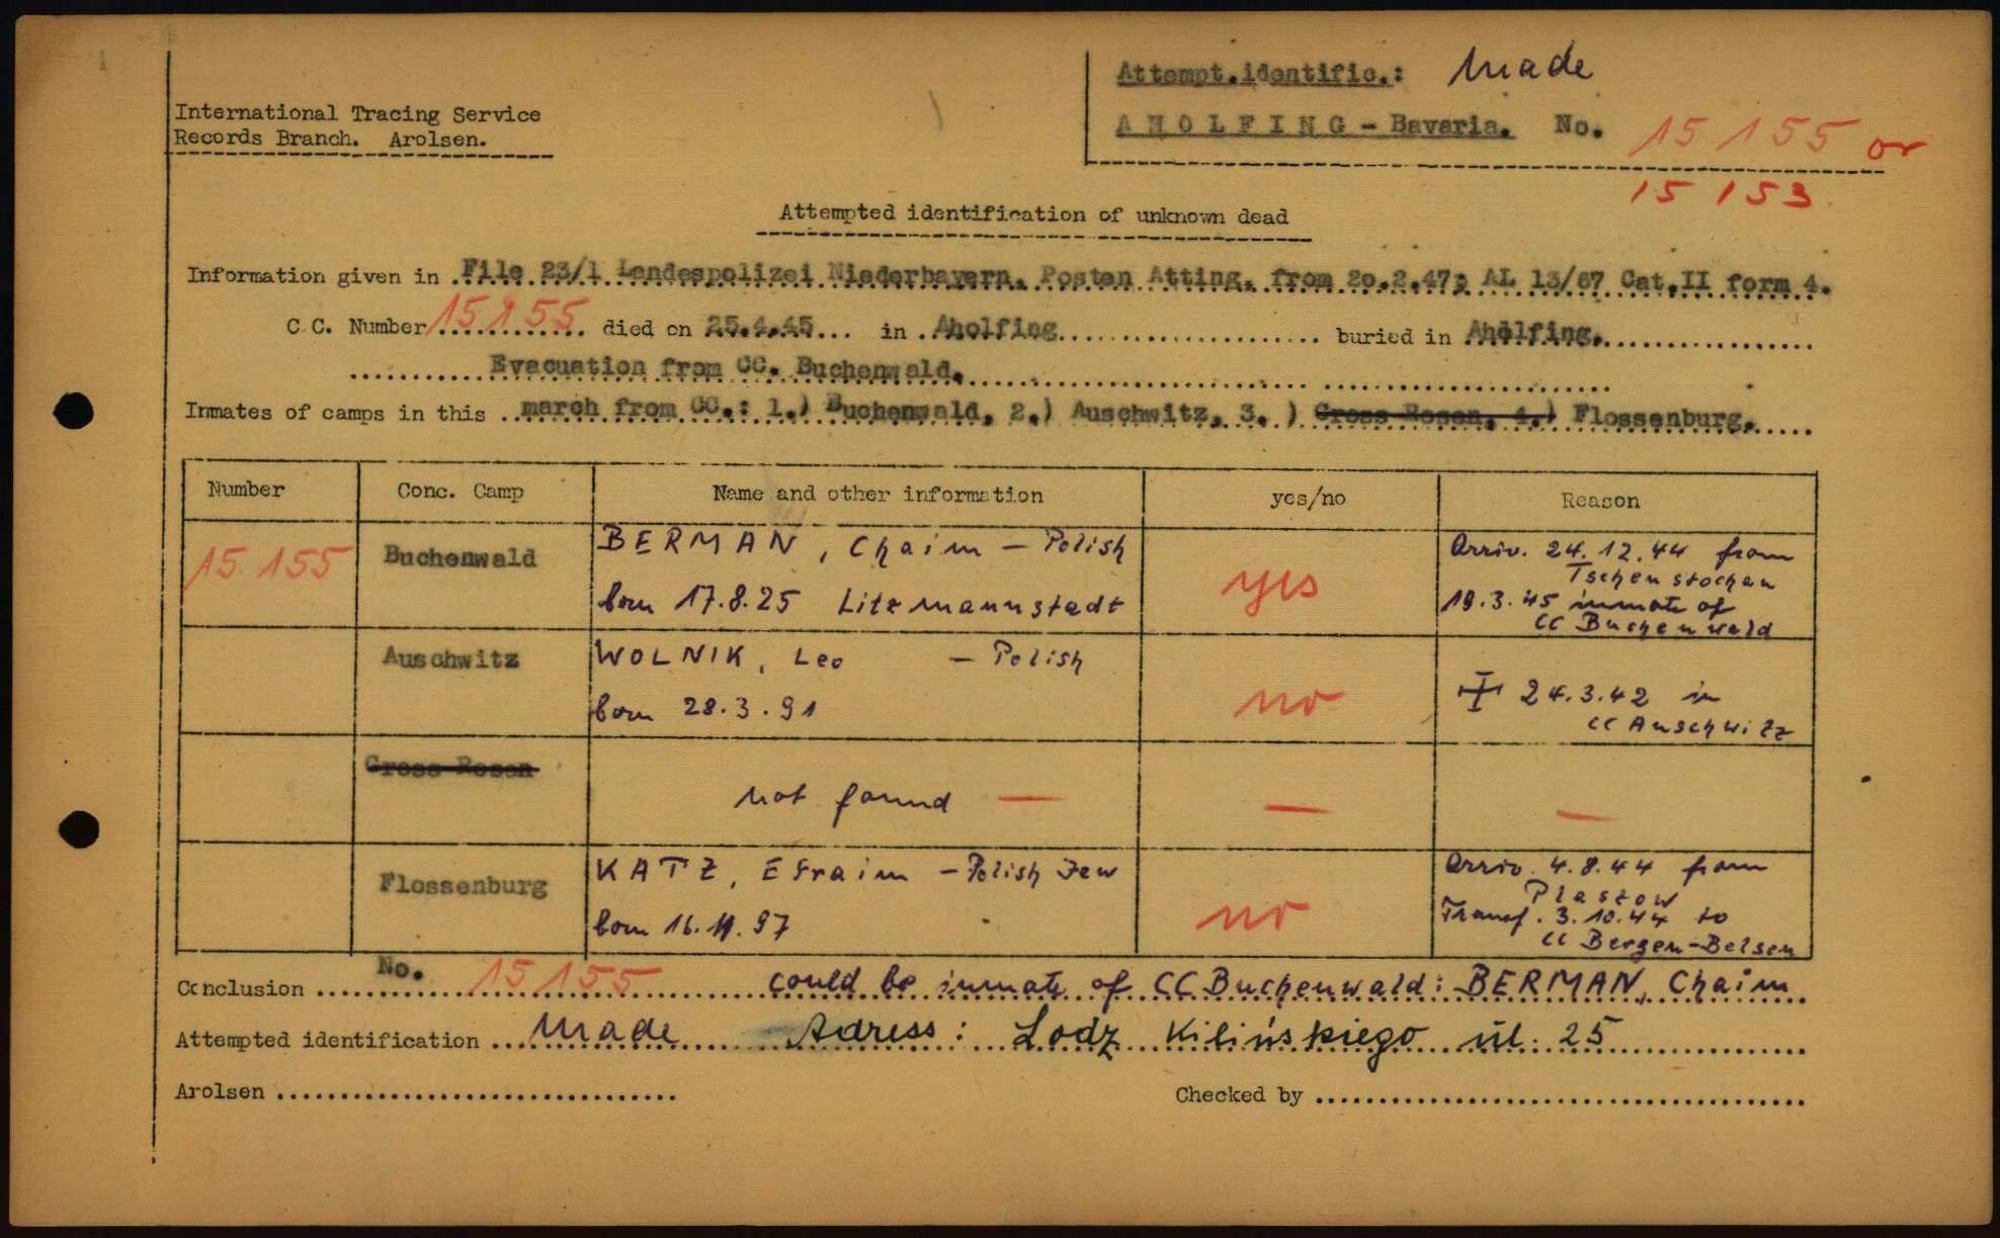 Attempt.identific.: Made
International Tracing Service
Records Branch. Arolsen.
AHOLFING - Bavaria. No. 15 155 or
15 153
Attempted identification of unknown dead
Information given in File 23/1 Landespolizei Niederbayern. Posten Atting, from 20.2.47; AL 13/67 Cat.II form 4.
C.C. Number 15155 died on 25.4.45 in Aholfing buried in Aholfing.
Evacuation from CC. Buchenwald.
Inmates of camps in this march from CC.: 1.) Buchenwald, 2.) Auschwitz, 3. ) Gross Rosen, 4.) Flossenburg.
Number Conc. Camp Name and other information yes/no Reason
15 155 Buchenwald BERMAN, Chaim - Polish
born 17.8.25 Litzmannstadt
yes
Arriv. 24.12.44 from
Tschenstochau
19.3.45 inmate of
CC Buchenwald
Auschwitz WOLNIK, Leo - Polish
born 28.3.91
no
24.3.42 in
CC Auschwitz
Gross Rosen
not found — — —
Flossenburg KATZ, Efraim - Polish Jew
born 16.11.97
no
Arriv. 4.8.44 from
Plaszow
Transf. 3.10.44 to
CC Bergen-Belsen
Conclusion No. 15155 could be inmate of CC Buchenwald: BERMAN, Chaim
Attempted identification Made Adress: Lodz Kilińskiego ul. 25
Arolsen Checked by